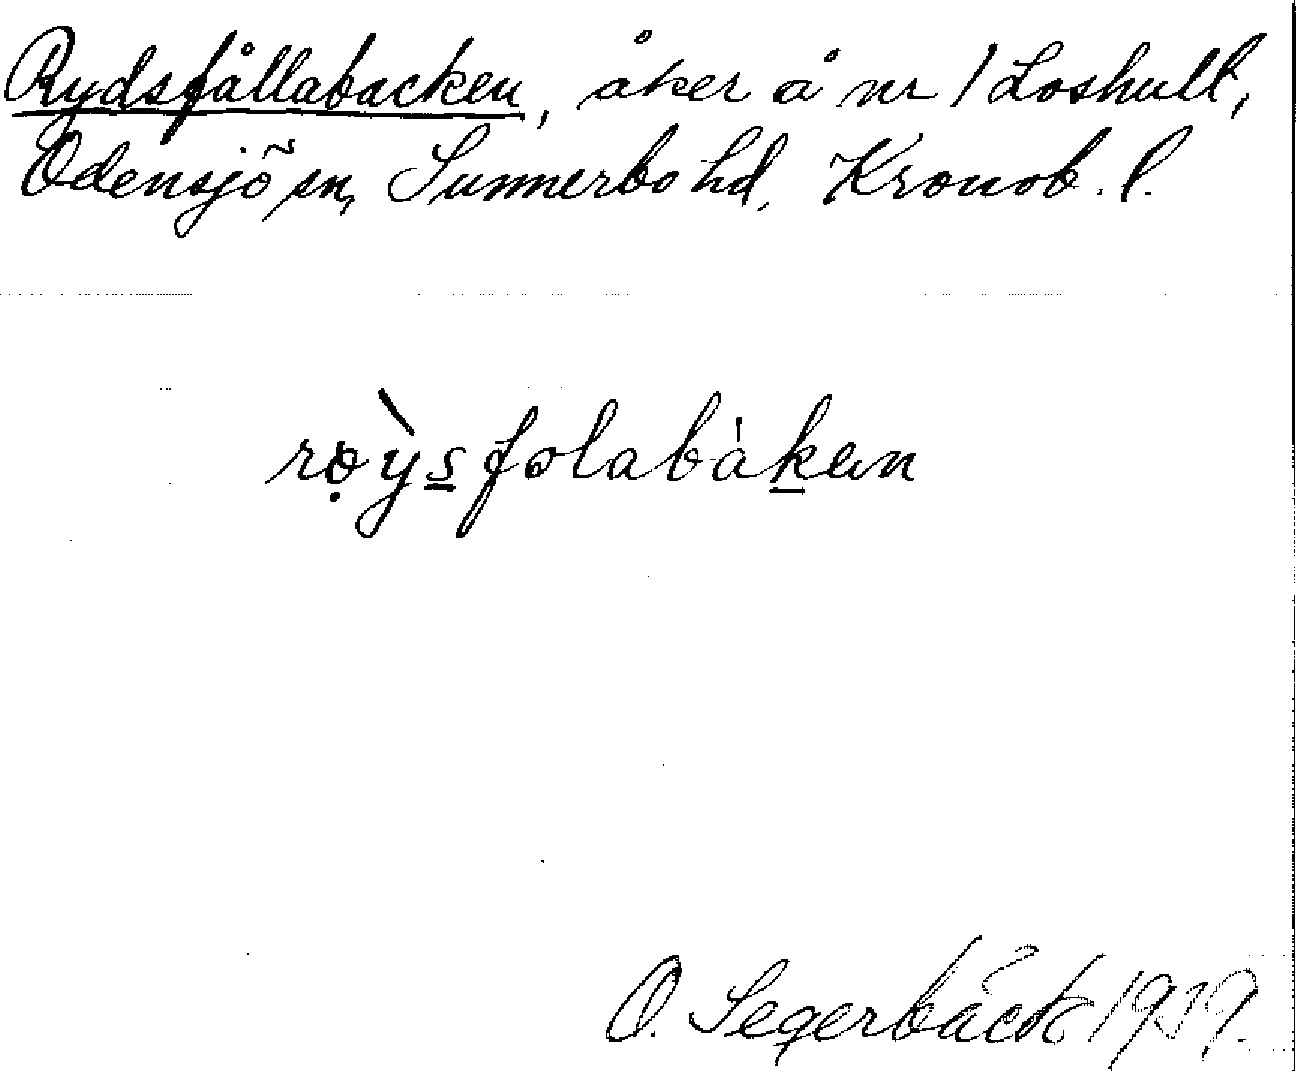 Rydsfållabacken, åker å nr 1 Loshult,
Odensjö sn, Sunnerbo hd, Kronob. l.
rọỳs̲folabàk̲en
O. Segerbäck 1939.